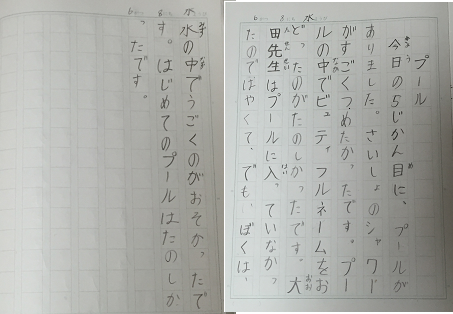 6 8 水
プール
今日の5じかん目に、プールが
ありました。さいしょのシャワー
がすごくつめたかったです。プー
ルの中でビュティフルネームをお
どったのがたのしかったです。大
田先生はプールに入っていなかっ
たのではやくて、でも、ぼくは、
6 8 水
水の中でうごくのがおそかったで
す。はじめてのプールはたのしか
ったです。